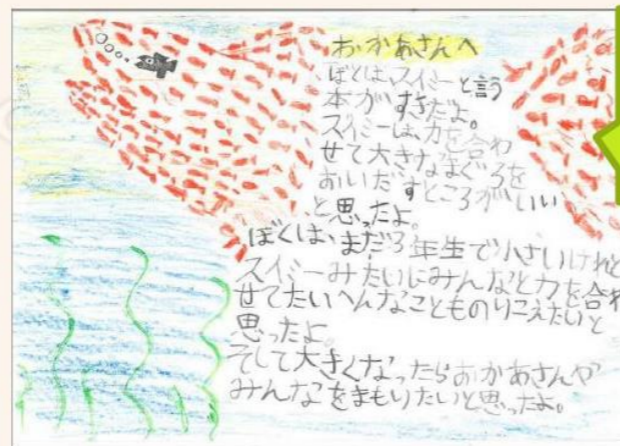 おかあさんへ
ぼくは、スイミーと言う
本がすきだよ。
スイミーは、力を合わ
せて大きなまぐろを
おいだすところがいい
と思ったよ。
ぼくは、まだ3年生で小さいけれど
スイミーみたいにみんなと力を合わ
せてたいへんなこともものりこえたいと
思ったよ。
そして大きくなったらおかあさんや
みんなをまもりたいと思ったよ。